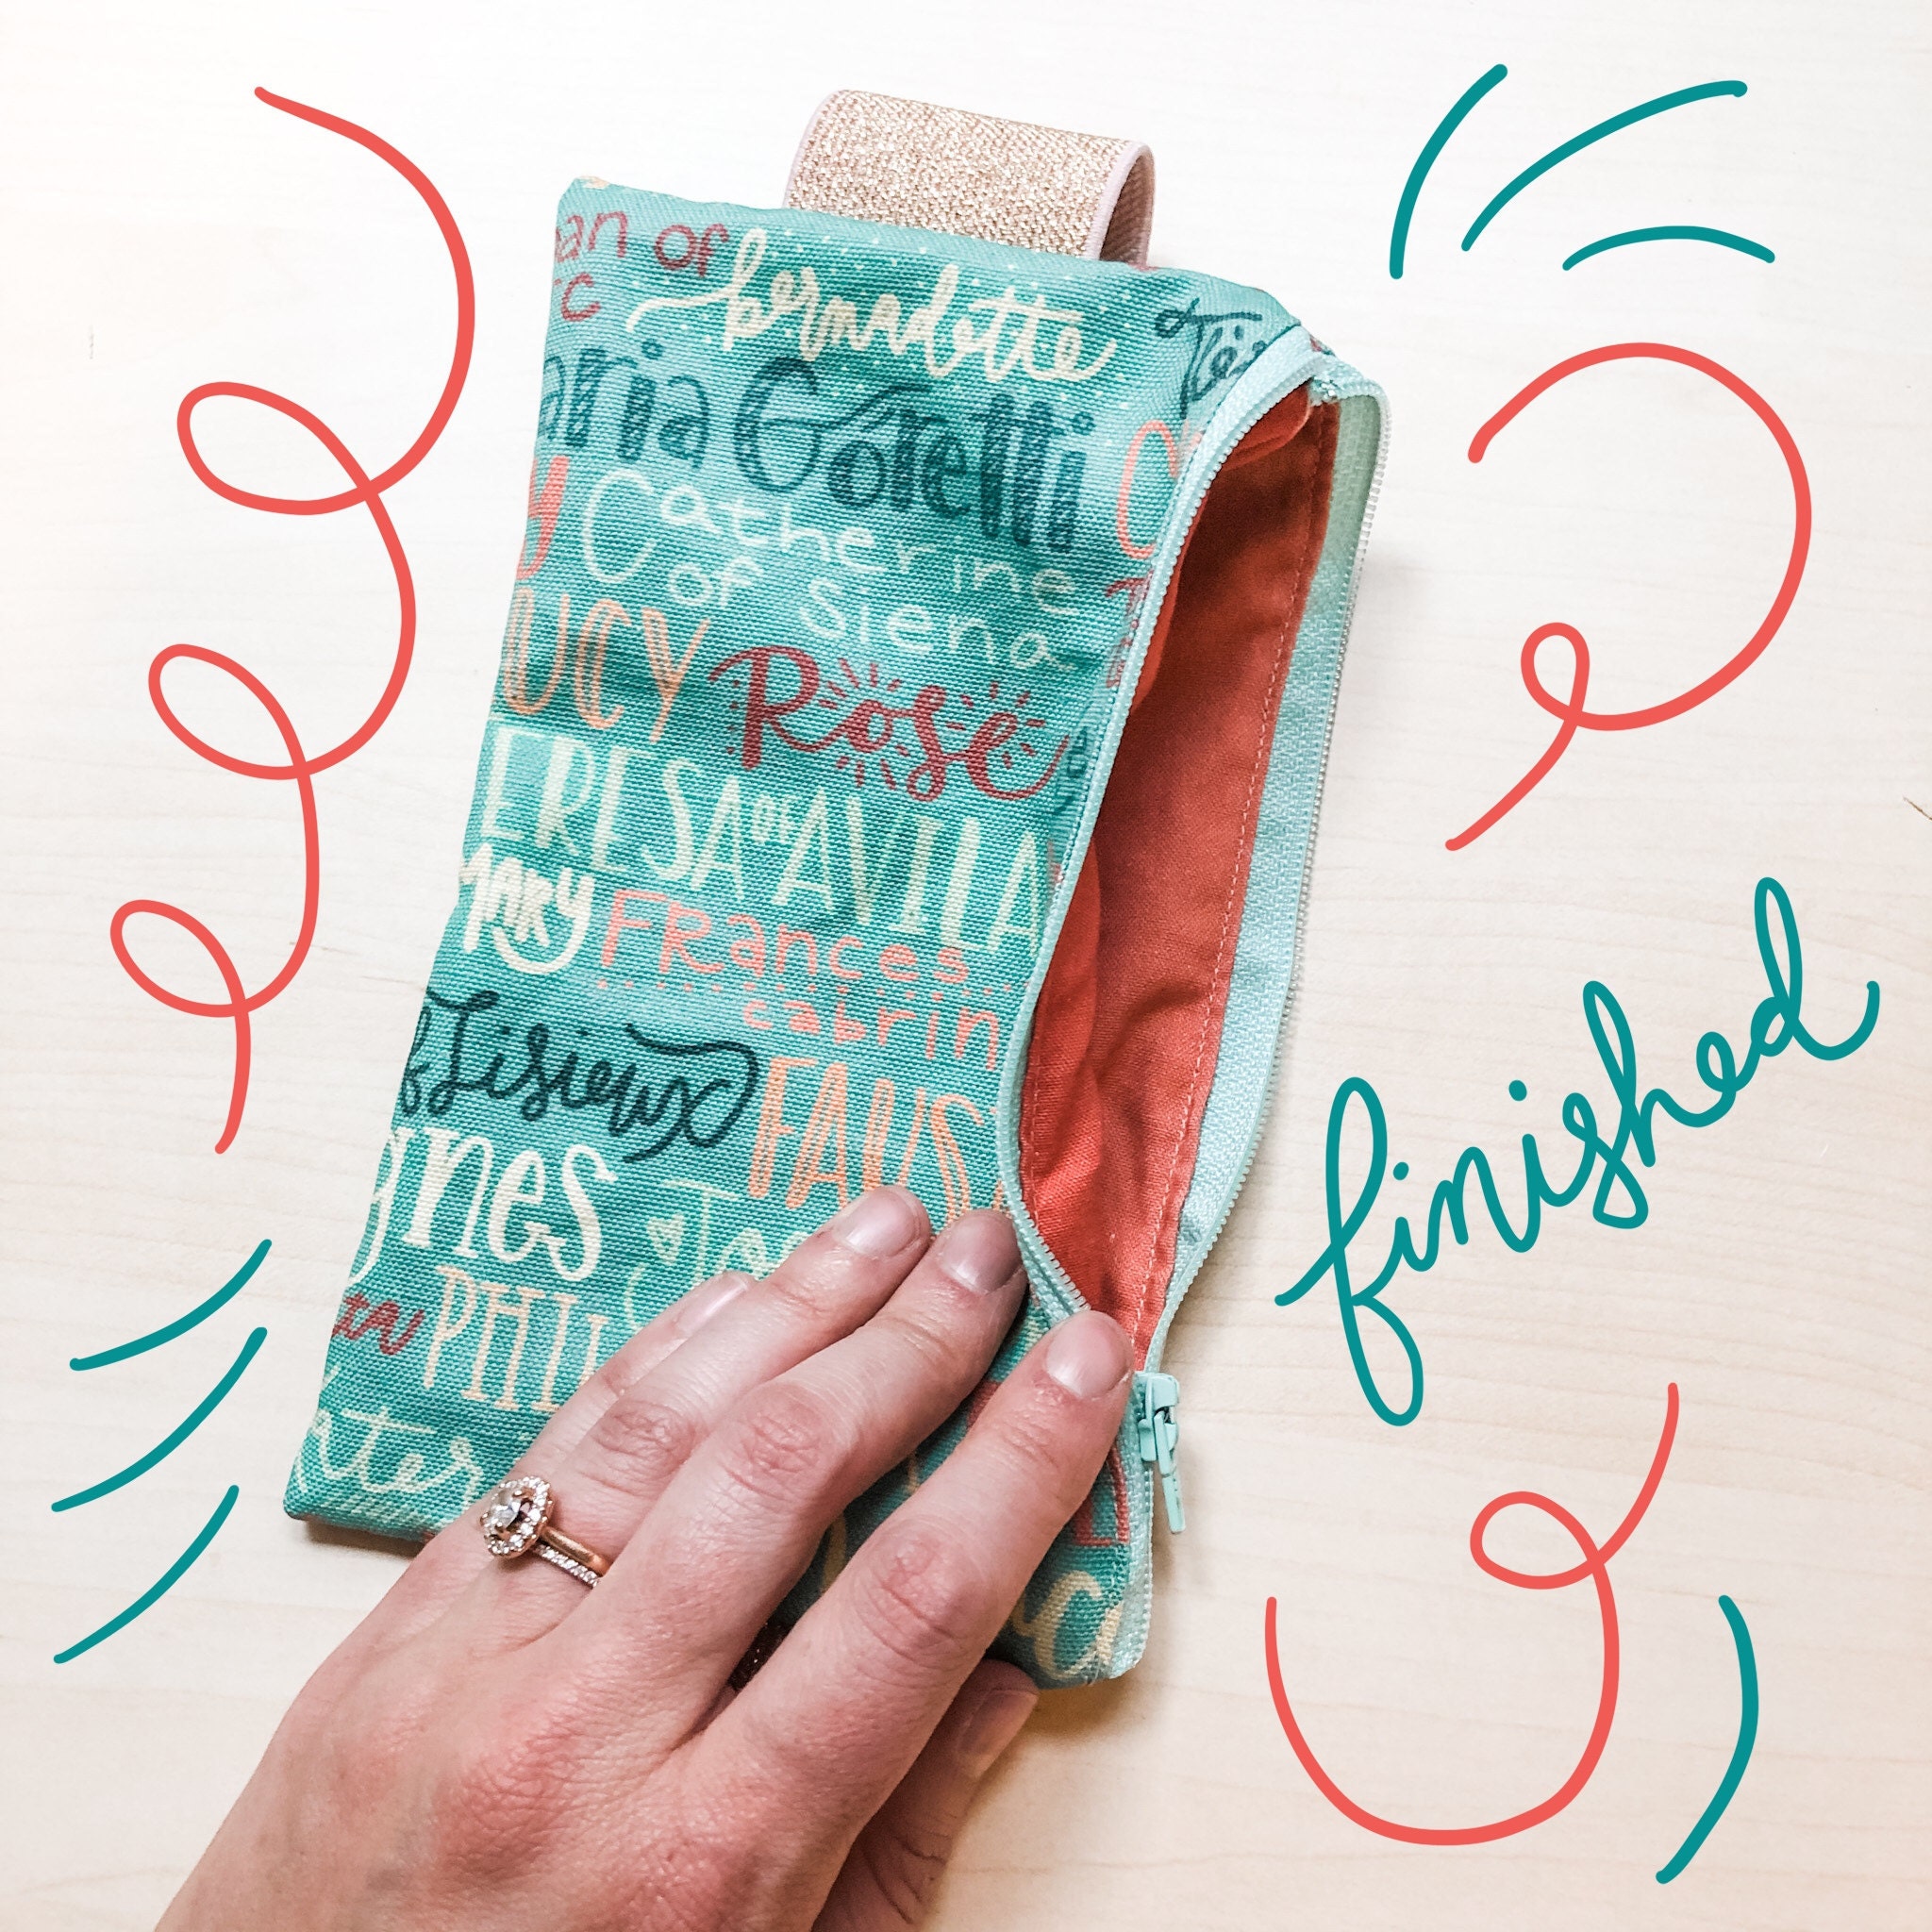 an of
bernadette
aria Goretti
C
y Catherine
of Siena
UCY Rose
ERESA OF AVILA
MARY FRances
cabrin
of Lisieux FAUS
gnes Jo
PHIL
ater
finished